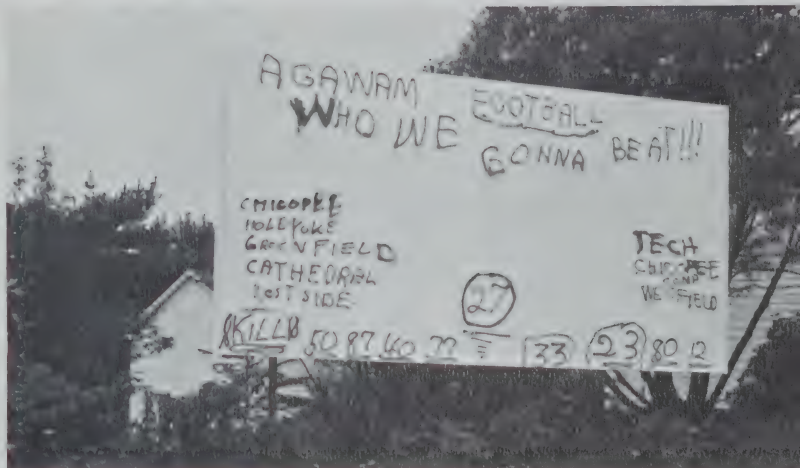 AGAWAM FOOTBALL
WHO WE GONNA BEAT!!!
CHICOPEE
HOLEYOKE
GREENFIELD
CATHEDRAL
WEST SIDE
TECH
CHICOPEE
COMP
WESTFIELD
50 87 60 77 27 33 23 80 12